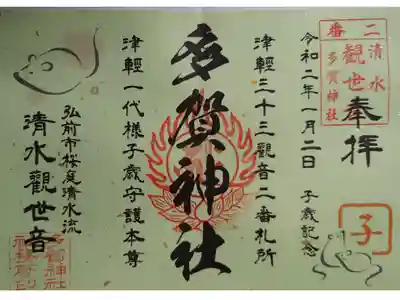 奉拝
二番
清水
観世
多賀神社
令和二年一月二日 子歳記念
子
津輕三十三觀音二番札所
多賀神社
津輕一代様子歳守護本尊
弘前市桜庭清水流
清水觀世音